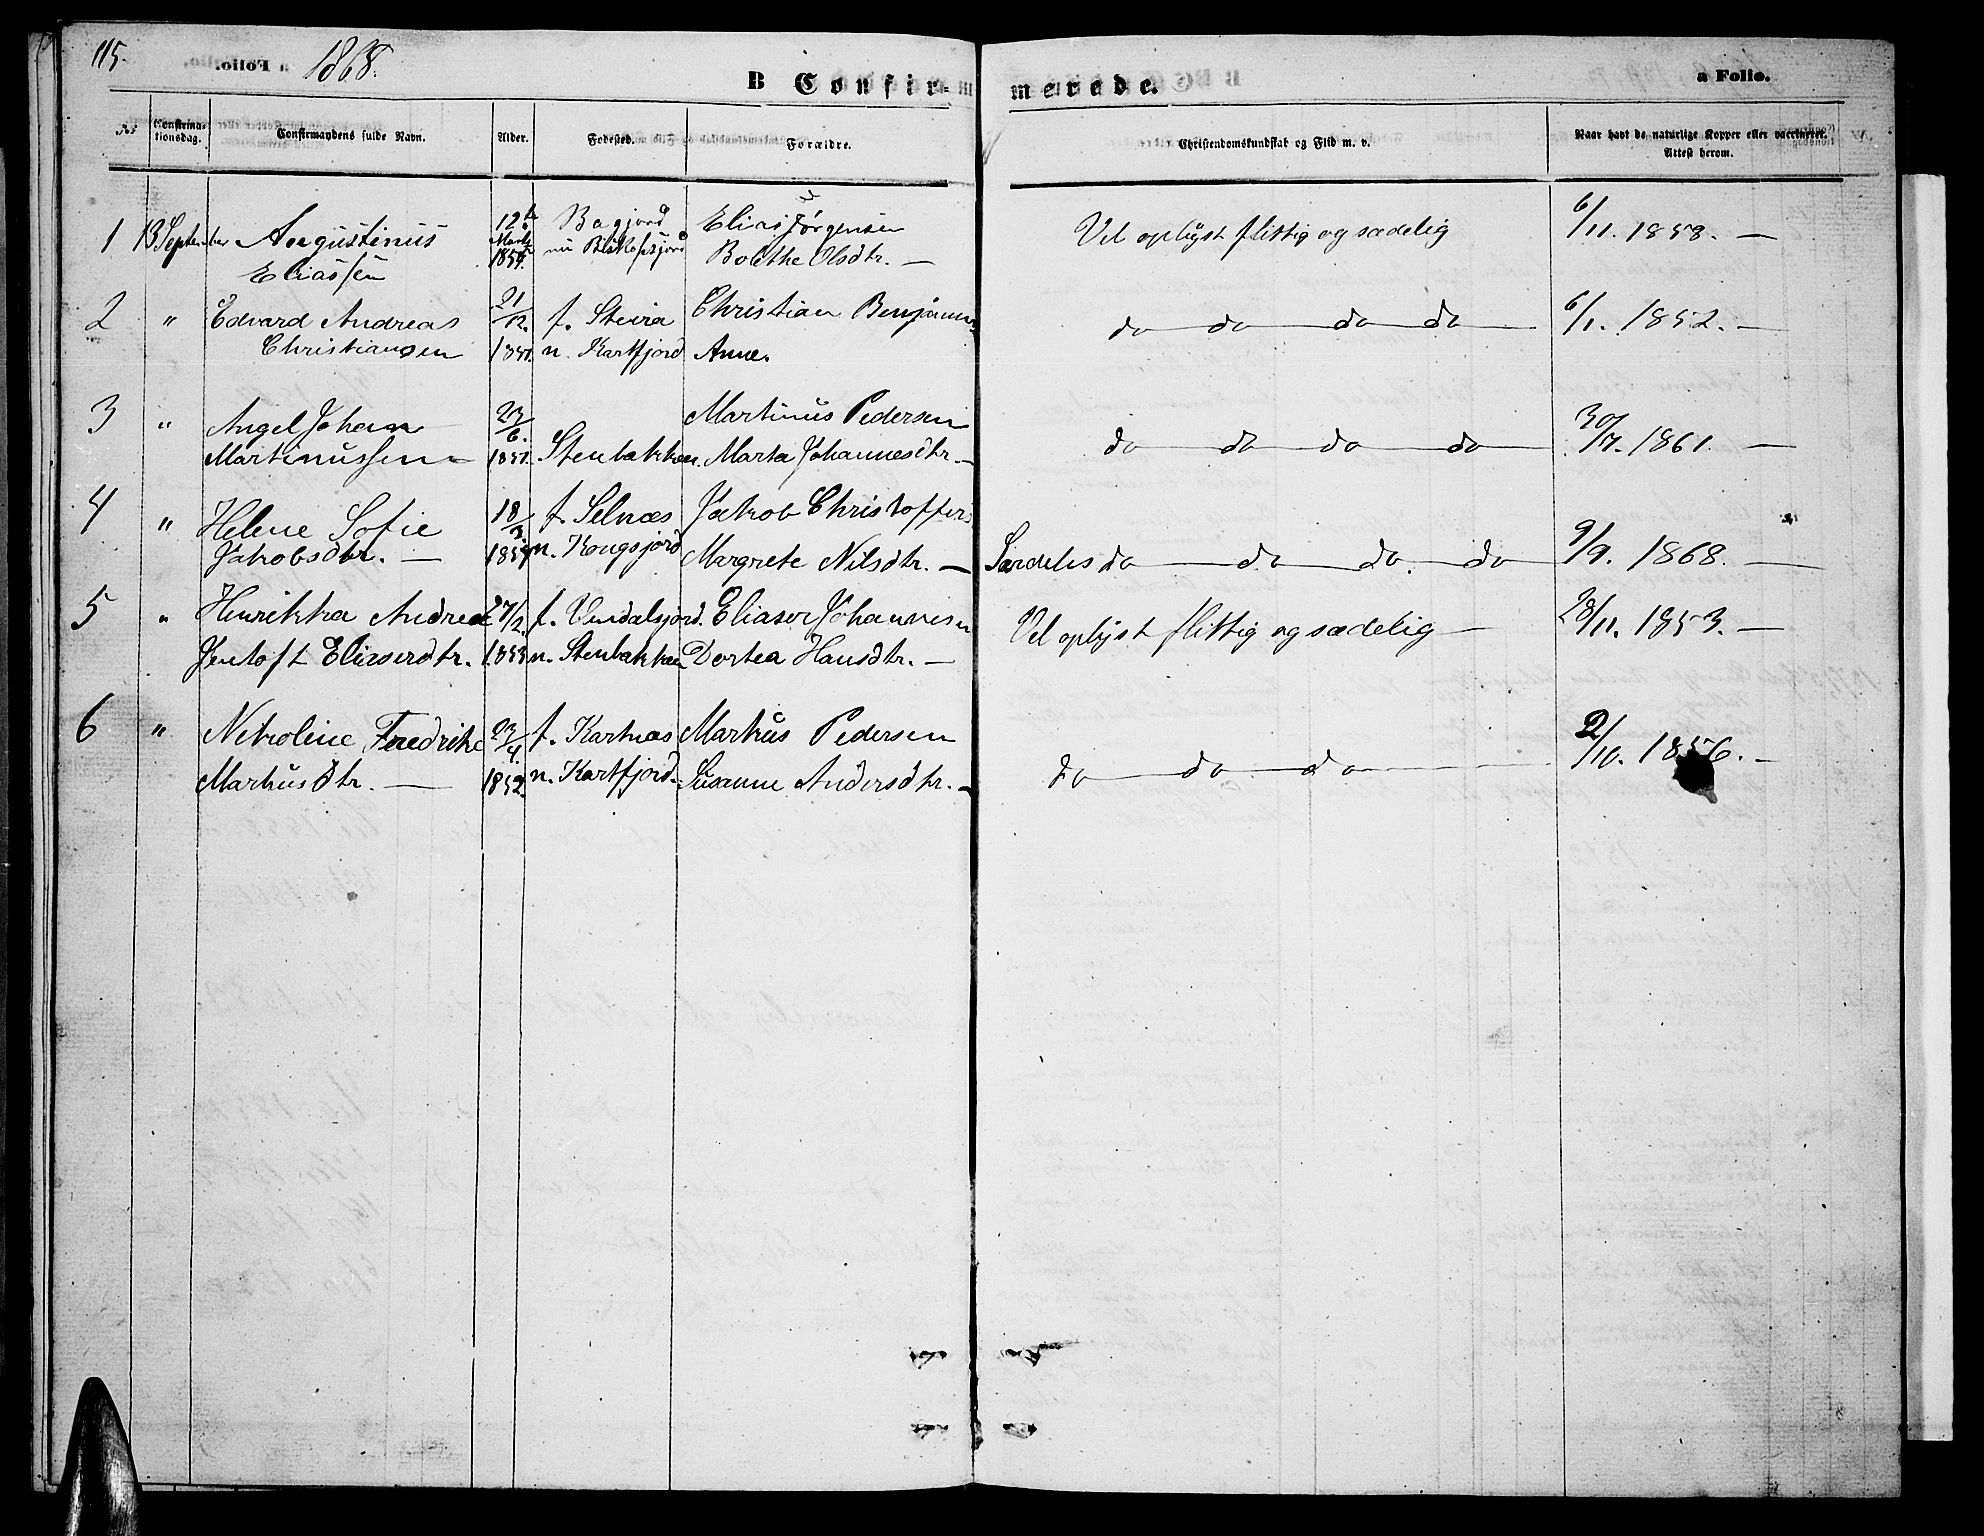 115.
1868.
a Folio.
B Confir-
merede.
No
Confirma-
tionsdag.
Confirmandens fulde Navn.
Alder.
Fødested.
Forældre.
Christendomskundskab og Flid m. v.
Naar havt de naturlige Kopper eller vaccineret.
Attest herom.
1 13 September Augustinus 12te Bagjord Elias Jørgensen Vel oplyst flittig og sædelig 6/11. 1858. —
Eliassen Marts 1854. nu Biskopsjord Bolethe Olsdtr. —
2 " Edvard Andreas 21/12. f. Steira Christian Benjamins do do do do 6/1. 1852. —
Christiansen 1851. n. Kartfjord Anne.
3 " Angel Johan 23/6. Martinus Pedersen do do do do 30/7. 1861. —
Martinussen 1851. Stenbakken. Marta Johannesdtr. —
4 " Helene Sofie 18/3. f. Selnæs Jakob Christoffers
Jakobsdtr. — 1854 n. Kongsjord Margrete Nilsdtr. — Særdeles do do do. do 9/9. 1868. —
5 " Henrikka Andrea 27/2. f. Undalsjord. Eliaser Johannesn Vel oplyst flittig og sædelig — 28/11. 1853. —
Jentoft Eliaserdtr. 1853 n. Stenbakken Dortea Hansdtr. —
6 " Nekoline Fredrike 23/4. f. Kartnæs Markus Pedersen do do do 2/10. 1856. —
Markusdtr. — 1852. n. Kartfjord. Susanne Andersdtr. —